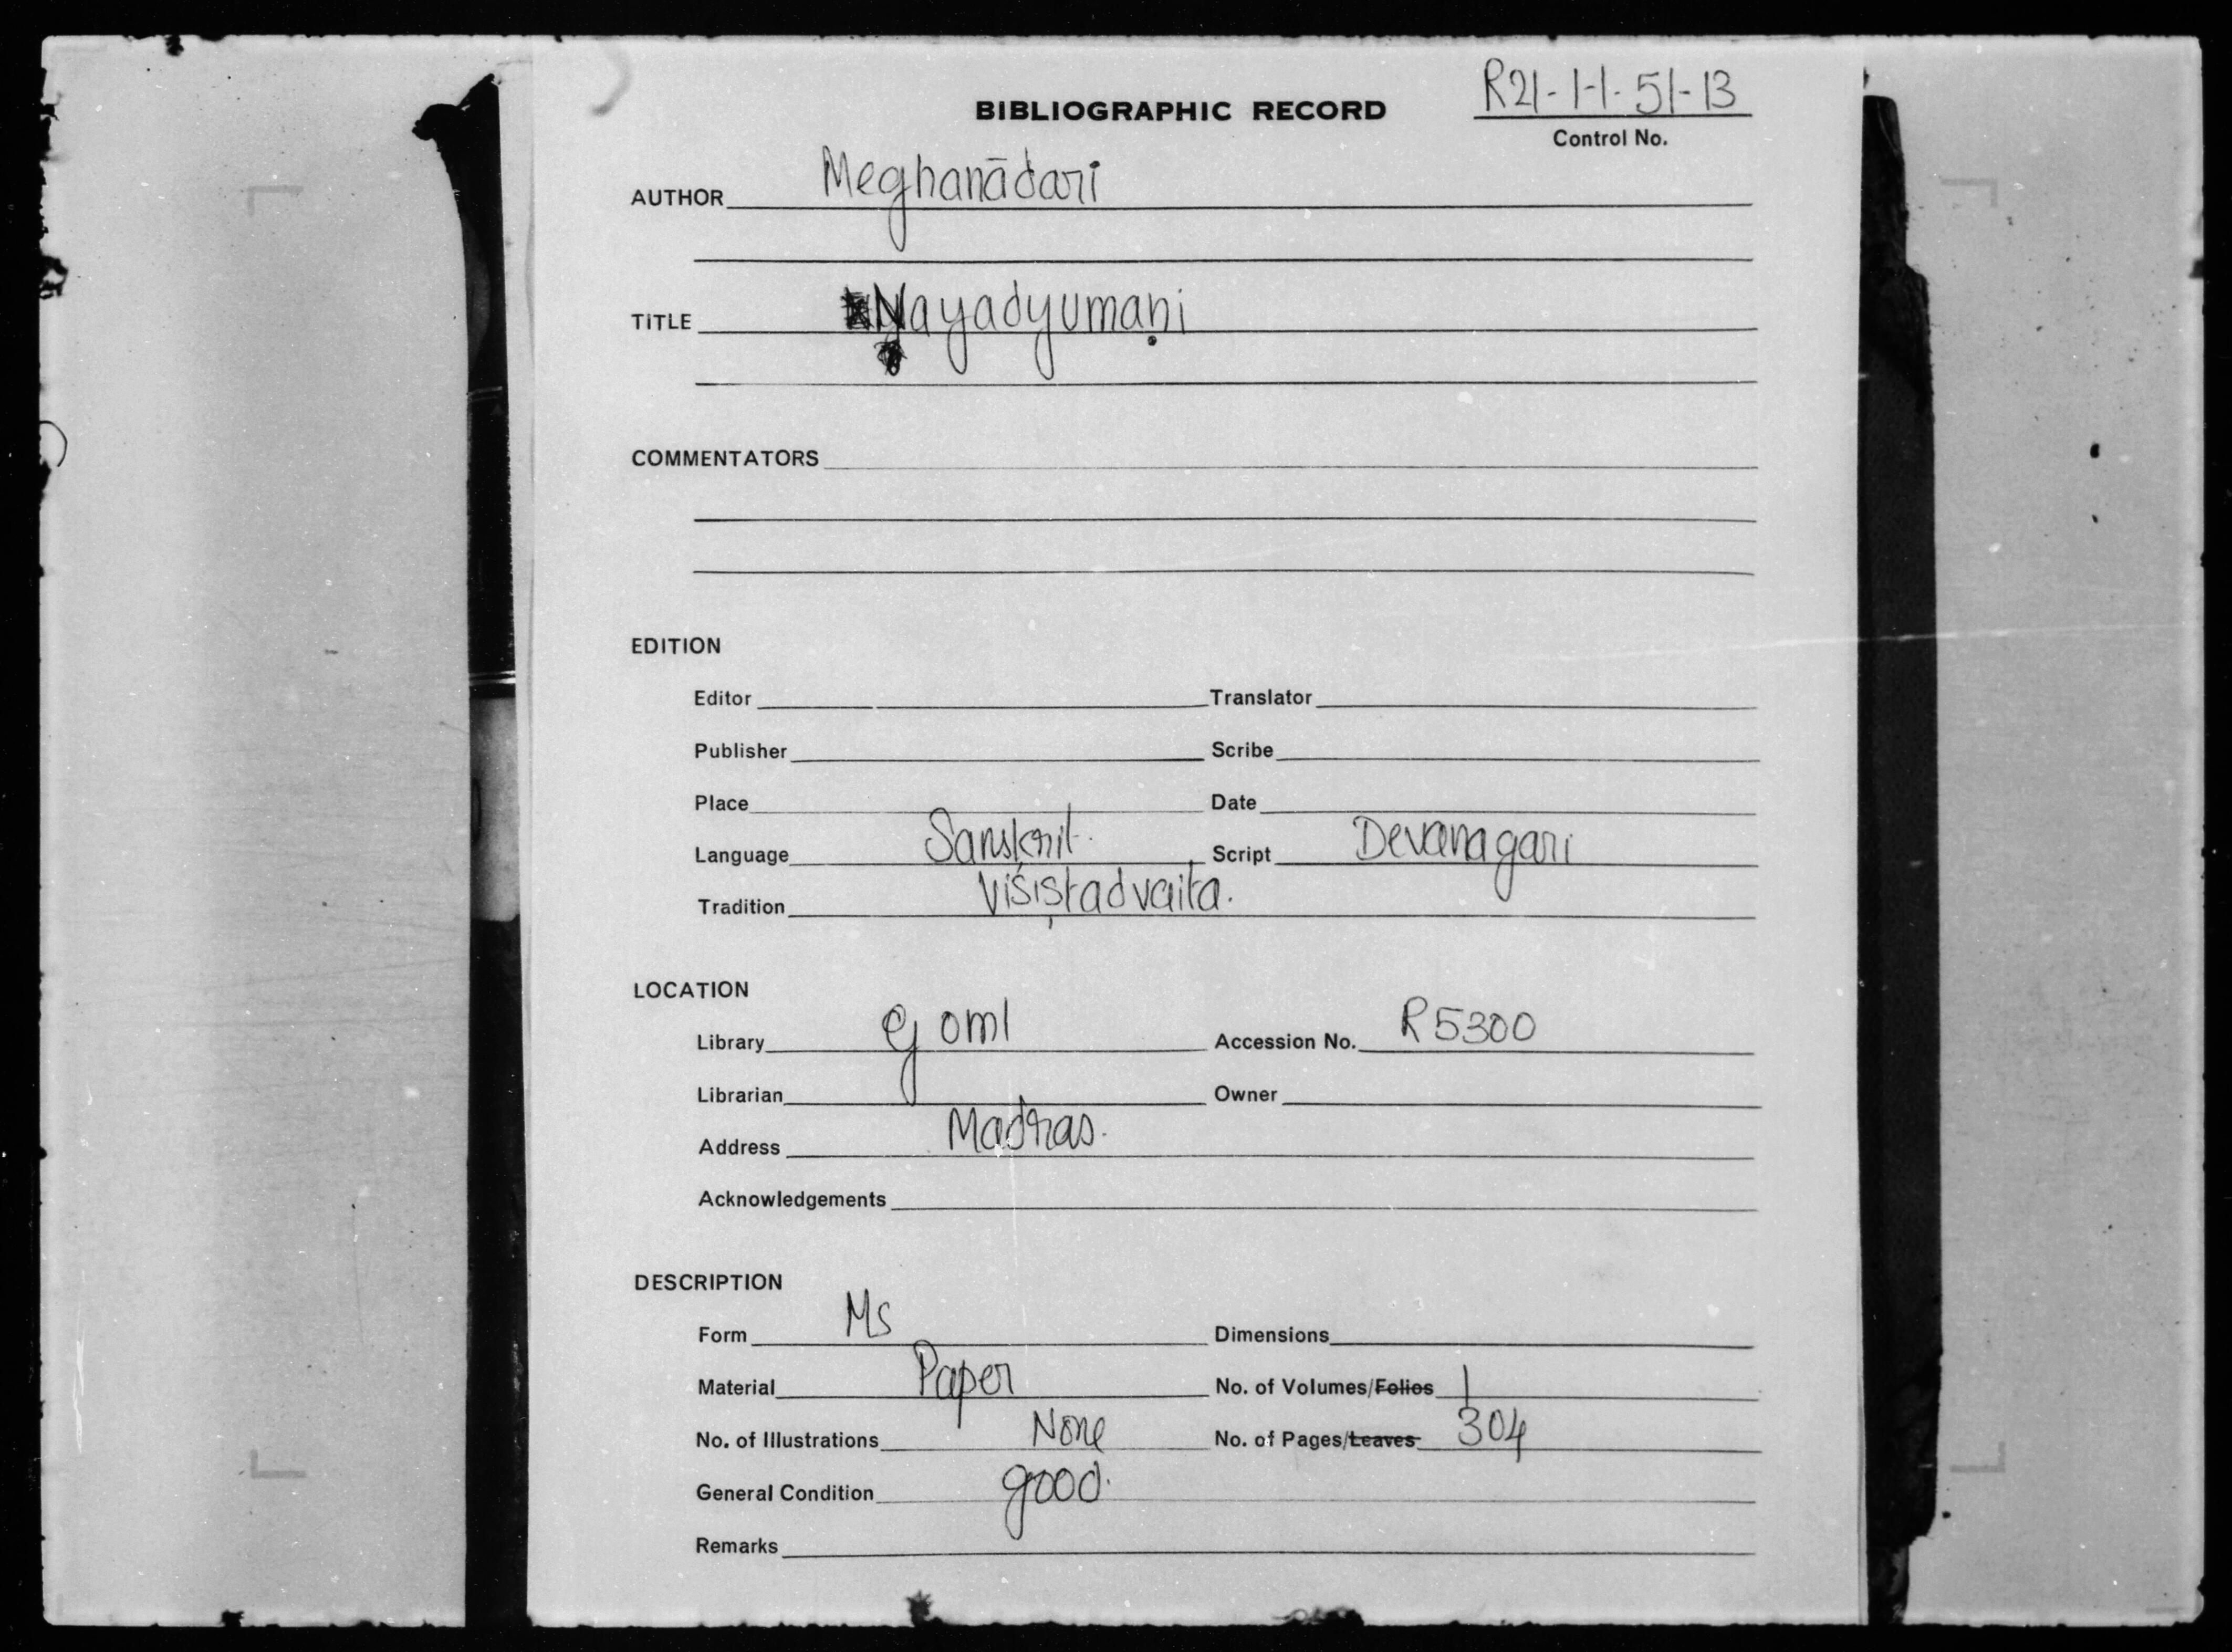 BIBLIOGRAPHIC RECORD
R21-1-1-51-13
Control No.
AUTHOR Meghanādari
TITLE Nayadyumaṇi
COMMENTATORS
EDITION
Editor Translator
Publisher Scribe
Place Date
Language Sanskrit. Script Devanagari
Tradition Viśiṣtadvaita.
LOCATION
Library goml Accession No. R5300
Librarian Owner
Address Madras.
Acknowledgements
DESCRIPTION
Form Ms Dimensions
Material Paper No. of Volumes/Folios 1
No. of Illustrations None No. of Pages/Leaves 304
General Condition good.
Remarks